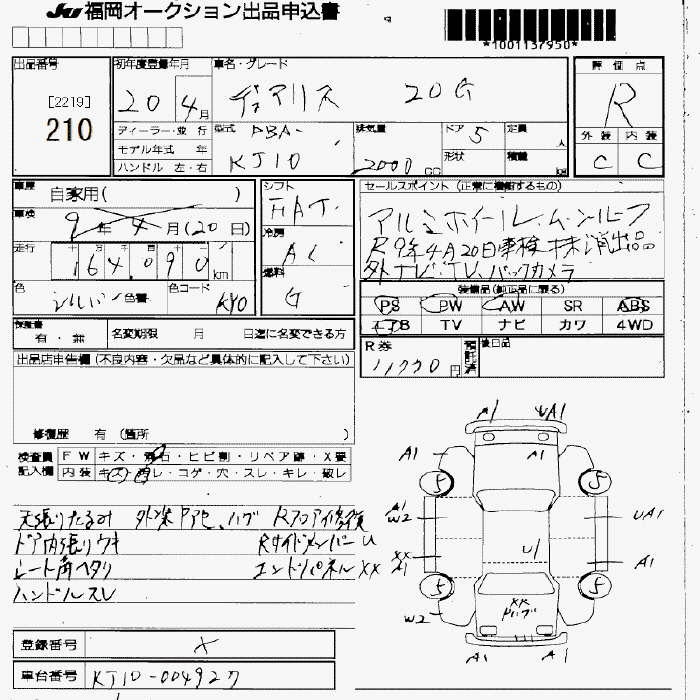 JU 福岡オークション出品申込書
*1001137950*
出品番号
[2219]
210
初年度登録年月
20 4月
車名・グレード
デュアリス 20G
評価点
R
ディーラー・並行
モデル年式 年
ハンドル 左・右
型式
DBA-
KJ10
排気量
2000 CC
ドア 5
形状
定員 人
積載 kg
外装 内装
C C
車歴 自家用( )
車検 9年4月(20日)
走行 164,090 km
色 シルバー 色番
色コード KY0
シフト
FAT
冷房
AC
燃料
G
セールスポイント (正常に機能するもの)
アルミホイール、ムーンルーフ
R9年4月20日車検 抹消出品
外ナビ、TV、バックカメラ
装備品(純正品に限る)
PS PW AW SR ABS
エアB TV ナビ カワ 4WD
保証書
有・無
名変期限 月 日迄に名変できる方
R券
円
預託済
後日品
出品店申告欄 (不良内容・欠品など具体的に記入して下さい)
修復歴 有 (箇所 )
検査員記入欄
FW キズ・飛石・ヒビ割・リペア跡・X要
内装 キズ・汚れ・コゲ・穴・スレ・キレ・破レ
天張りたるみ Rフロア修復
ドア内張りウキ RサイドメンバーU
シート角ヘタリ エンドパネルXX
ハンドルスレ
A1 UA1
A1 A1
5 5
A1
W2 UA1
U1
XX
A1 A1
5 5
XX
W2
A1 A1
登録番号 X
車台番号 KJ10-004927